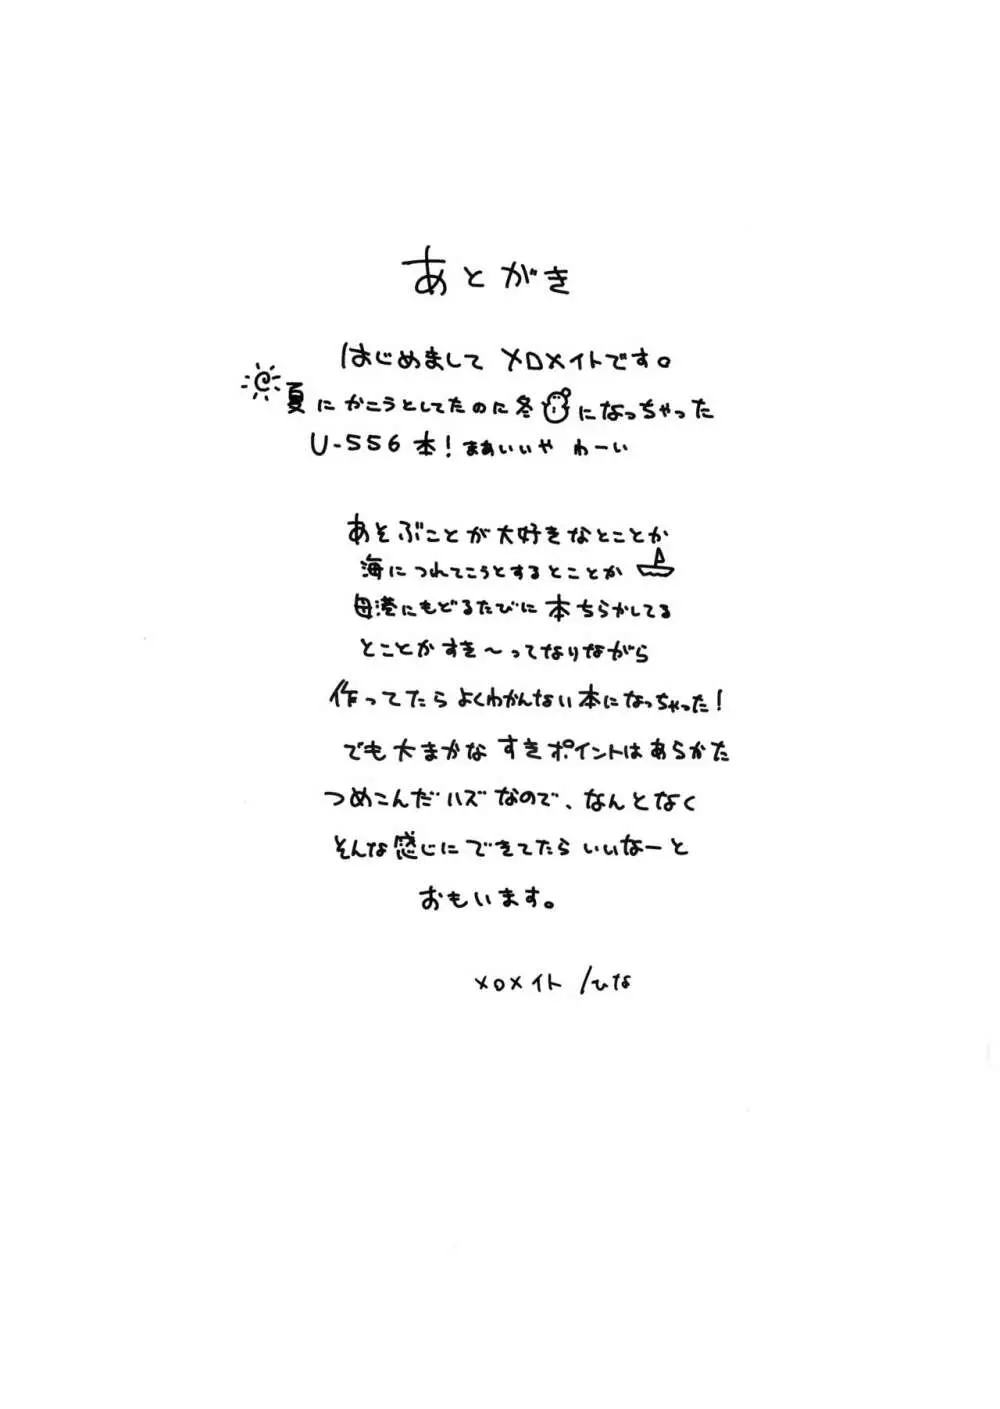 あとがき
はじめまして メロメイトです。
夏に かこうとしてたのに冬になっちゃった
U-556 本！まあいいや わーい
あそぶことが大好きなとことか
海に つれてこうとするとことか
母港にもどるたびに 本ちらかしてる
とことか すき～ってなりながら
作ってたら よくわかんない 本になっちゃった！
でも 大まかな すきポイントは あらかた
つめこんだハズなので、なんとなく
そんな感じに できてたら いいなーと
おもいます。
メロメイト /ひな